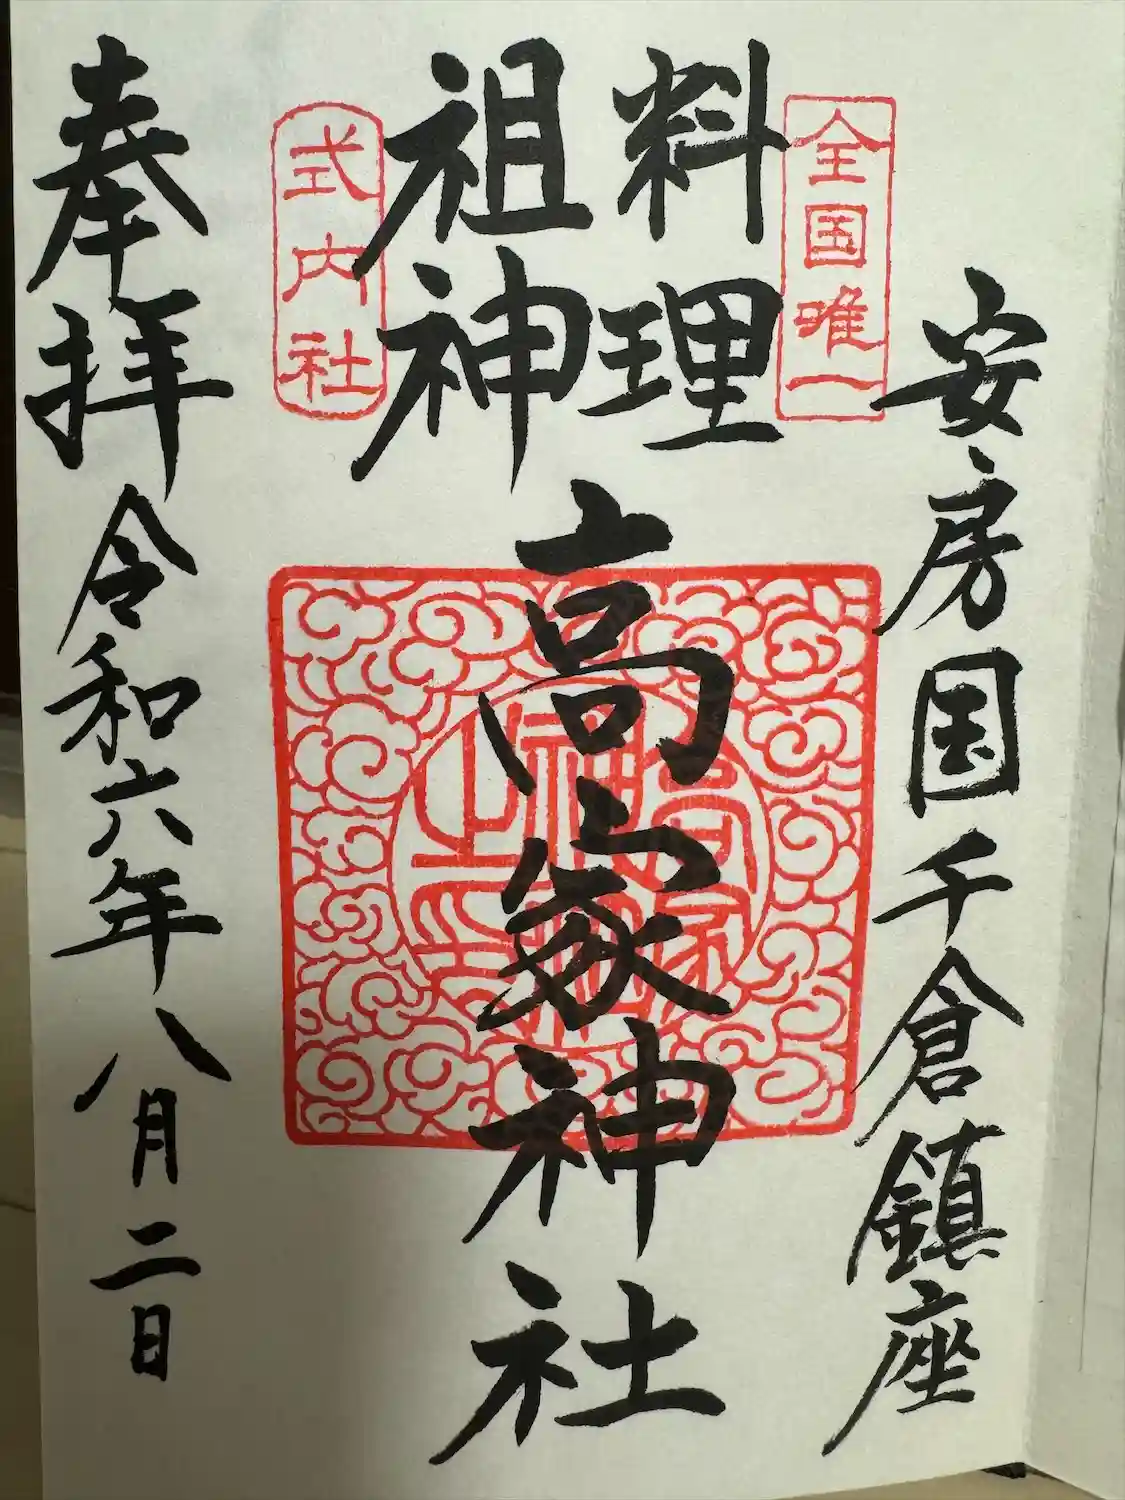 安房国千倉鎮座
全国唯一
料理
祖神
式内社
高家神社
高家
神社
之印
奉拝
令和六年八月二日